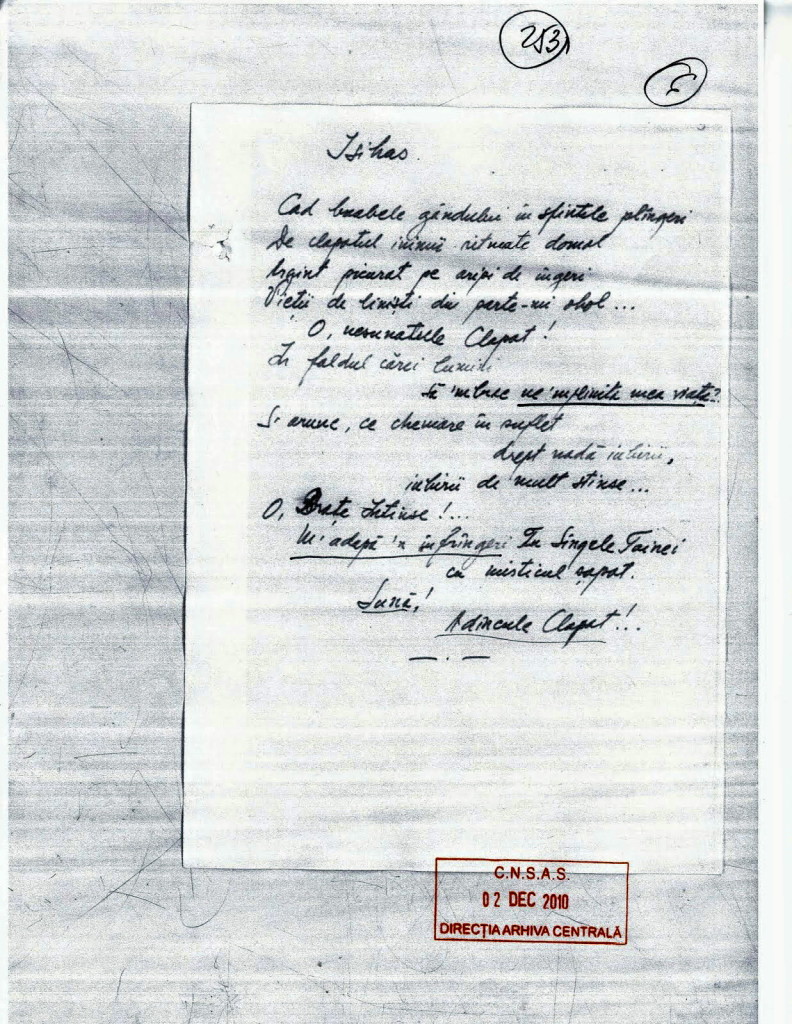 253
Isihas.
Cad boabele gândului în sfintele plîngeri
De clopotul inimii ritmate domol
Argint picurat pe aripi de îngeri
Vieții de liniști din parte-mi obol...
O, nesunatule Clopot!
În faldul cărei lumini
Să 'mbrac ne'mplinita mea viață?
Și arunc, ce chemare în suflet
drept nadă iubirii,
iubirii de mult stinse...
O, Brațe Întinse!...
M'adapă 'n înfrîngeri Tu Sîngele Tainei
cu misticul ropot.
Sună!
Adîncule Clopot!..
C.N.S.A.S.
02 DEC 2010
DIRECȚIA ARHIVA CENTRALĂ